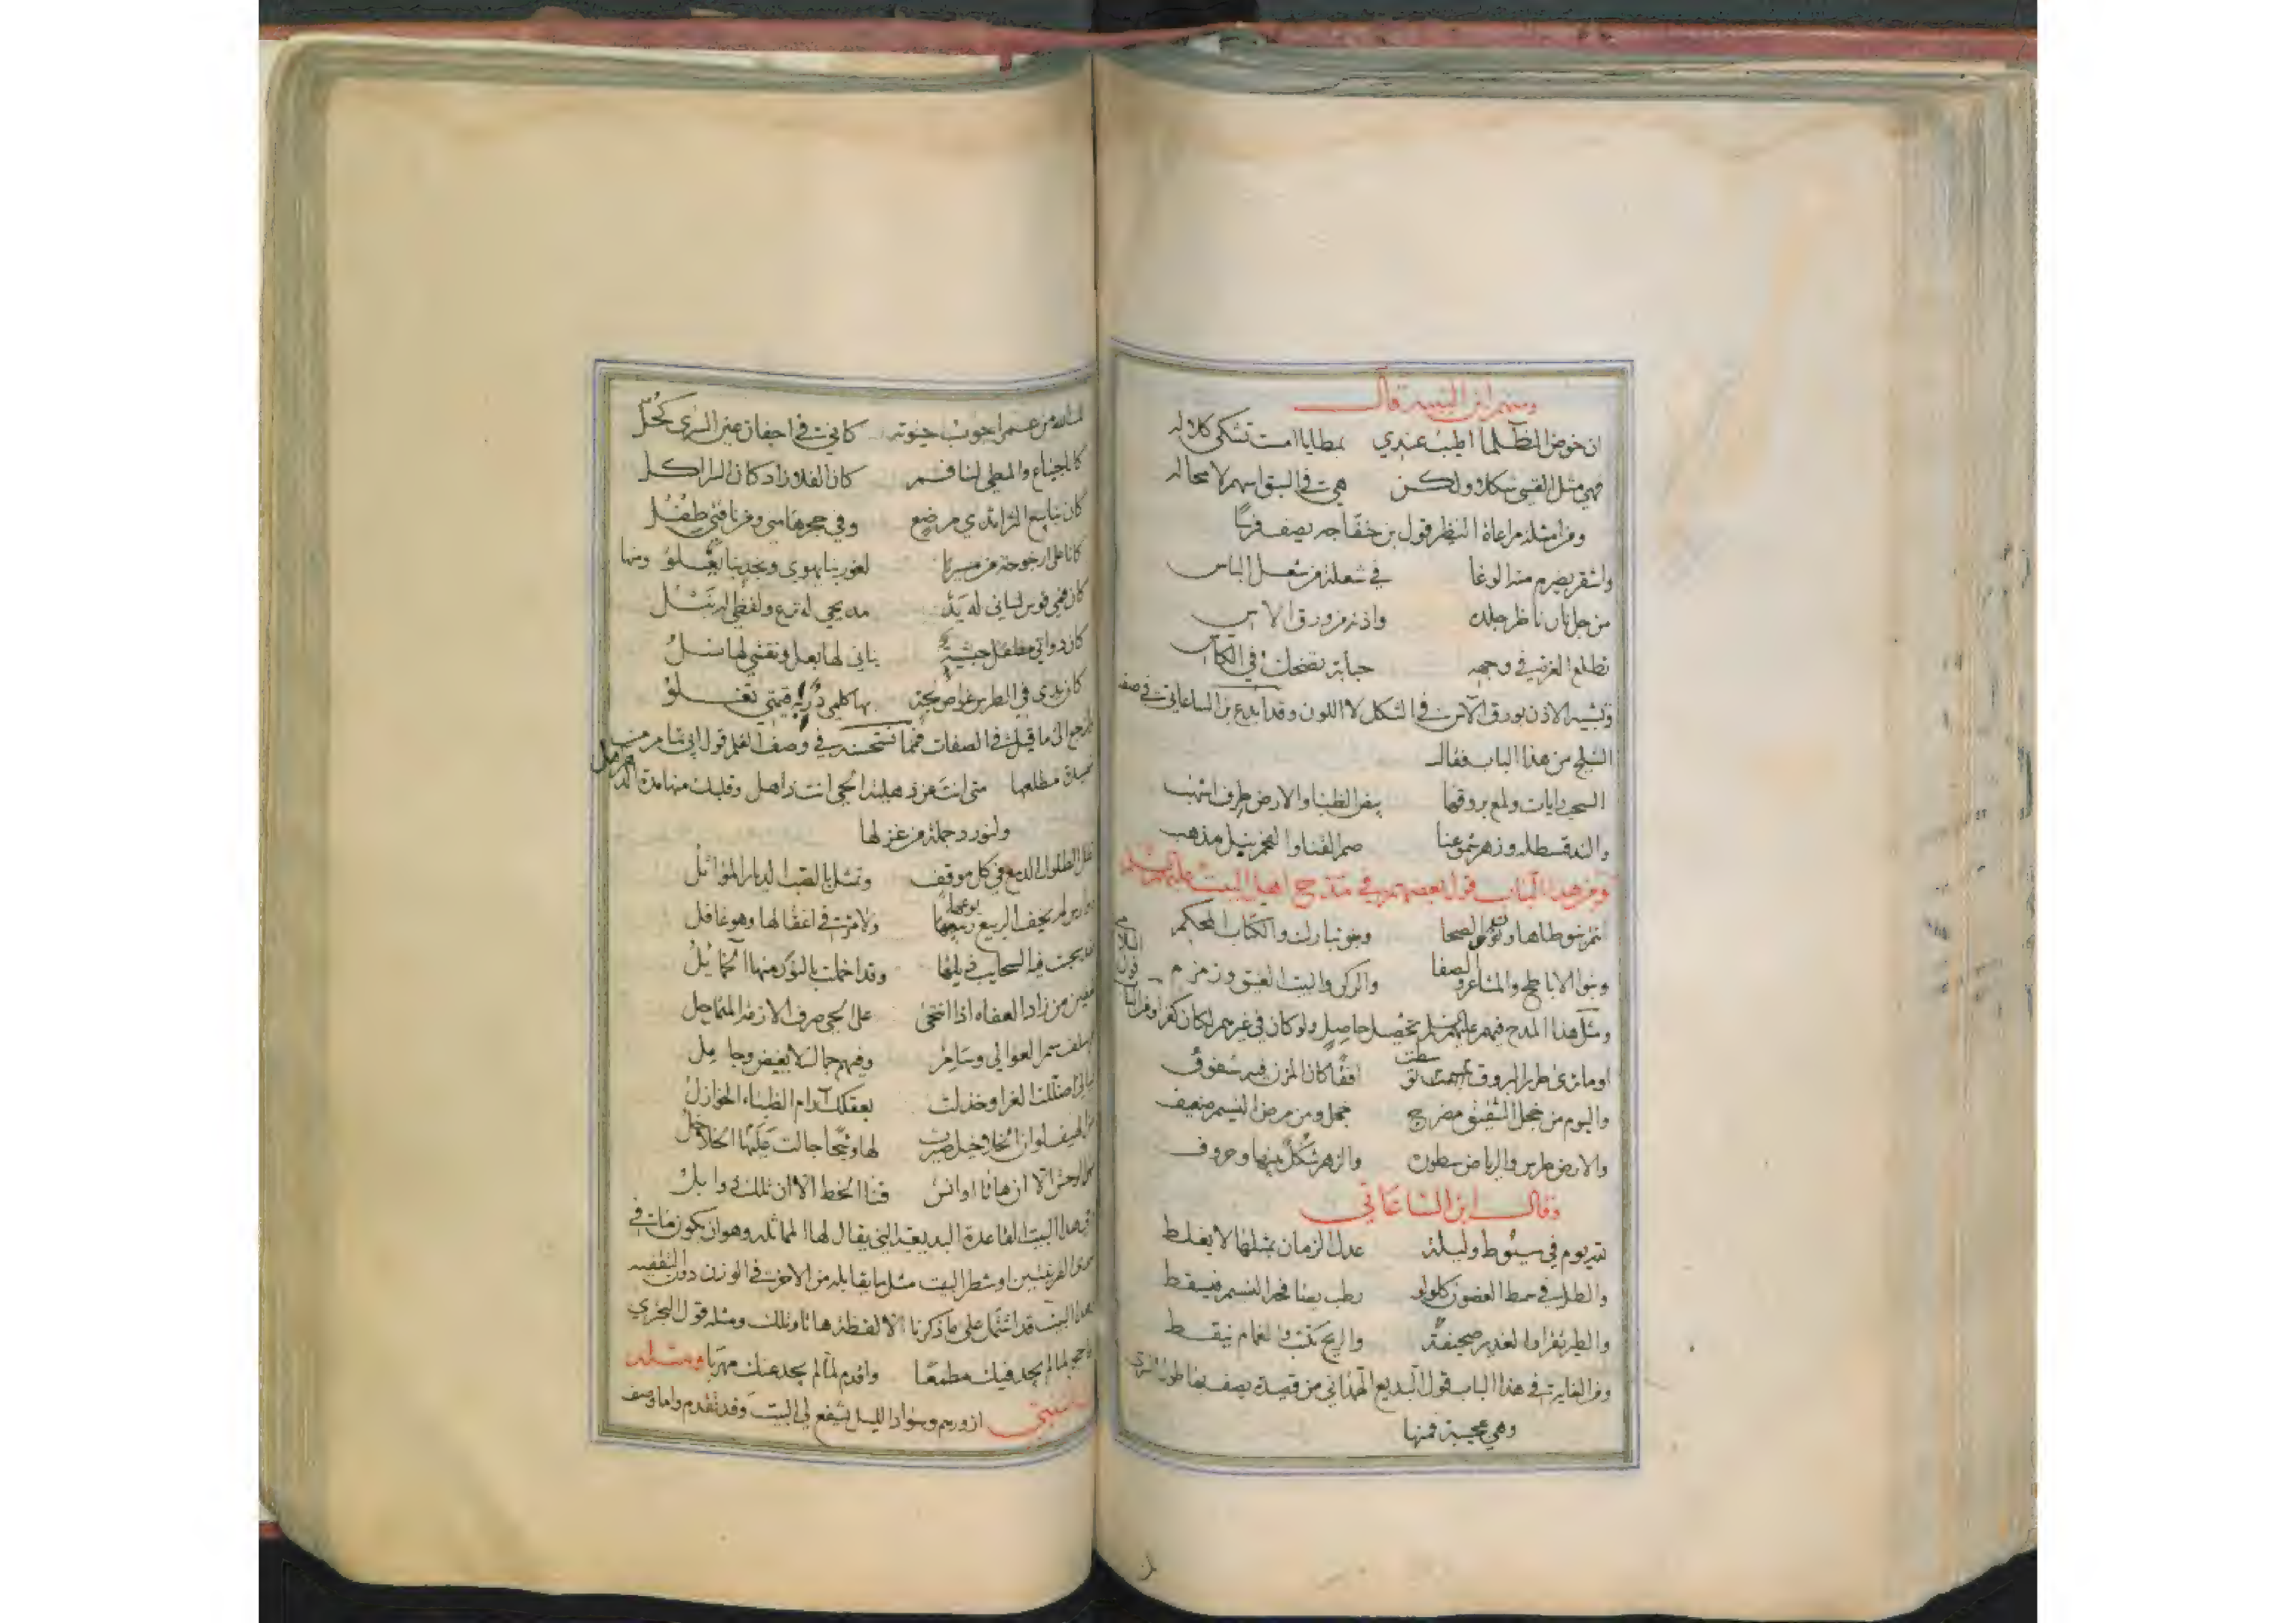 ومنهم ابن النبيه قال
ان خوض الظلما اطيب عندي بمطايا امست تشكي كلاله
فهي مثل القسي شكلا ولكن هي في السبق اسهم لا محاله
ومن امثلة مراعاة النظير قول بن خفاجه يصف فرسا
واشقر يضرم منه الوغا في شعلة من شعل الباس
من جلنار ناظر جلده واذنه من ورق الاس
تطلع الغرة في وجهه حبابة تضحك في الكاس
وتشبيه الاذن بورق الاس في الشكل لا اللون وقد ابدع بن الساعاتي في صفة
الثلج من هذا الباب فقال
السحب رايات ولمع بروقها بيض الظبا والارض طرف اشهب
والند قسطله وزهر شموعنا صم القنا والفحم نبل مذهب
ومن هذا الباب قول بعضهم في مدح اهل البيت عليهم السلام
انتم بنو طاها ونون والضحا وبنو تبارك والكتاب المحكم
وبنو الاباطح والمشاعر والصفا والركن والبيت العتيق وزمزم
ومثل هذا المدح فيهم عليهم السلم تحصيل حاصل ولو كان في غيرهم لكان كفرا ومن
او ما ترى طرر البروق توسطت افقا كان المزن فيه شفوف
واليوم من خجل الشقيق مضرج خجل ومن مرض النسيم ضعيف
والارض طرس والرياض سطوره والزهر شكل بينها وحروف
وقال ابن الساعاتي
لله يوم في سيوط وليلة عدل الزمان بمثلها لا يغلط
والطل في سمط الغصون كلولو رطب يصافحه النسيم فيسقط
والطير تقرا والغدير صحيفة والريح تكتب والغمام ينقط
ومن الغايات في هذا الباب قول البديع الهمذاني من قصيدة يصف بها طول السرى
وهي عجيبة فمنها
لك الله من عزم اجوب جيوبه كاني في اجفان عين السرى كحل
كانا جياع والمطي لنا فم كان الفلا زاد كان السرا اكل
كان ينابيع الثرا ثدي مرضع وفي حجرها مني ومن ناقتي طفل
كانا على ارجوحة من مسيرنا لغور بنا يهوي ونجد بنا يعلو ومنها
كان فمي قوس لساني له يد مديحي له نزع ولفظي له نبل
كان دواتي مطفل حبشية بناني لها بعل ونقشي لها نسل
كان يدي في الطرس غواص لجة بها كلمي در به قيمتي تغلو
ولنرجع الى ما قيل في الصفات فمما نستحسنه في وصف القلم قول ابي تمام من
قصيدة مطلعها متى انت عن ذهلية الحي انت ذاهل وقلبك منها مدة الدهر اهل
ولنورد جملة من غزلها
تطل الطلول الدمع في كل موقف وتمثل بالصبر الديار المواثل
دوارس لم يجف الربيع ربوعها ولا مر في اغفالها وهو غافل
فقد سحبت فيه السحايب ذيلها وقد اخملت بالنور منها الخمايل
تعفين من زاد العفاه اذا انتحى على الحي صرف الازمة المتماحل
لهم سلف سمر العوالي وسامر وفيهم جمال لا يغيض وجامل
ليالي اضللت العزا وخذلت بعقلك آرام الظباء الخواذل
من الهيف لو ان الخلاخيل صيرت لها وشحا جالت عليها الخلاخل
مها الوحش الا ان هاتا اوانس قنا الخط الا ان تلك ذوابل
في هذا البيت القاعدة البديعية التي يقال لها المماثلة وهو ان يكون ما في
احدى القرينتين او شطر البيت مثل ما يقابله من الاخر في الوزن دون التقفيه
وهذا البيت قد اشتمل على ما ذكرنا الا لفظة هاتا وتلك ومثله قول البحتري
فاحجم لما لم يجد فيك مطمعا واقدم لما لم يجد عنك مهربا ومثله
ازورهم وسواد الليل يشفع لي البيت وقد تقدم واما وصف